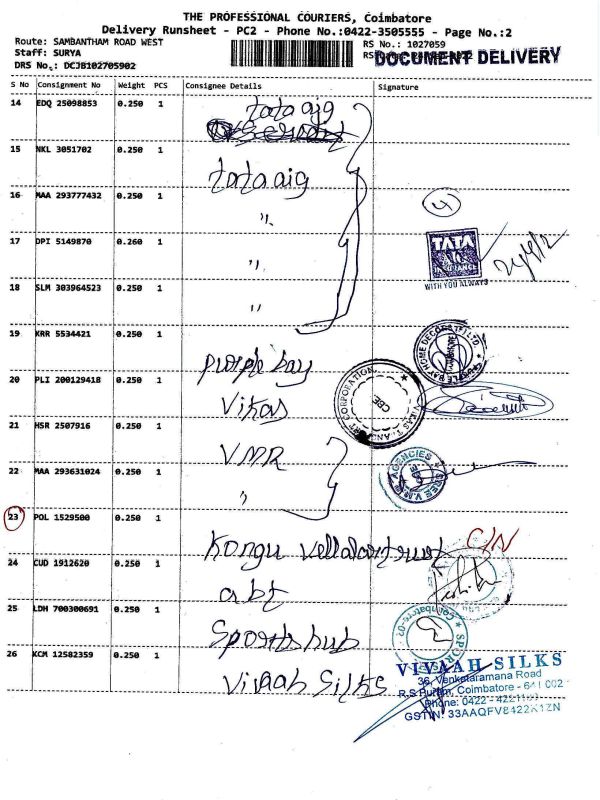 THE PROFESSIONAL COURIERS, Coimbatore
Delivery Runsheet - PC2 - Phone No.:0422-3505555 - Page No.:2
Route: SAMBANTHAM ROAD WEST
RS No.: 1027059
Staff: SURYA
DOCUMENT DELIVERY
DRS No.: DCJB102705902
S No Consignment No Weight PCS Consignee Details Signature
14 EDQ 25098853 0.250 1 tata aig
15 NKL 3051702 0.250 1 tata aig
16 MAA 293777432 0.250 1 "
17 DPI 5149870 0.260 1 "
18 SLM 303964523 0.250 1 "
4
TATA
INSURANCE
WITH YOU ALWAYS
19 KRR 5534421 0.250 1 purple bay
20 PLI 200129418 0.250 1 Vikas
CORPORATION
CBE
21 HSR 2507916 0.250 1 VMR
22 MAA 293631024 0.250 1 "
AGENCIES
SREE
23 POL 1529500 0.250 1 Kongu Vellalar trust
C/N
24 CUD 1912620 0.250 1 abt
25 LDH 700300691 0.250 1 Sports hub
26 KCM 12582359 0.250 1 Vivaah Silks
VIVAAH SILKS
36, Venkataramana Road
R.S Puram, Coimbatore - 641 002
Phone: 0422 -
GSTIN: 33AAQFV8422K1ZN